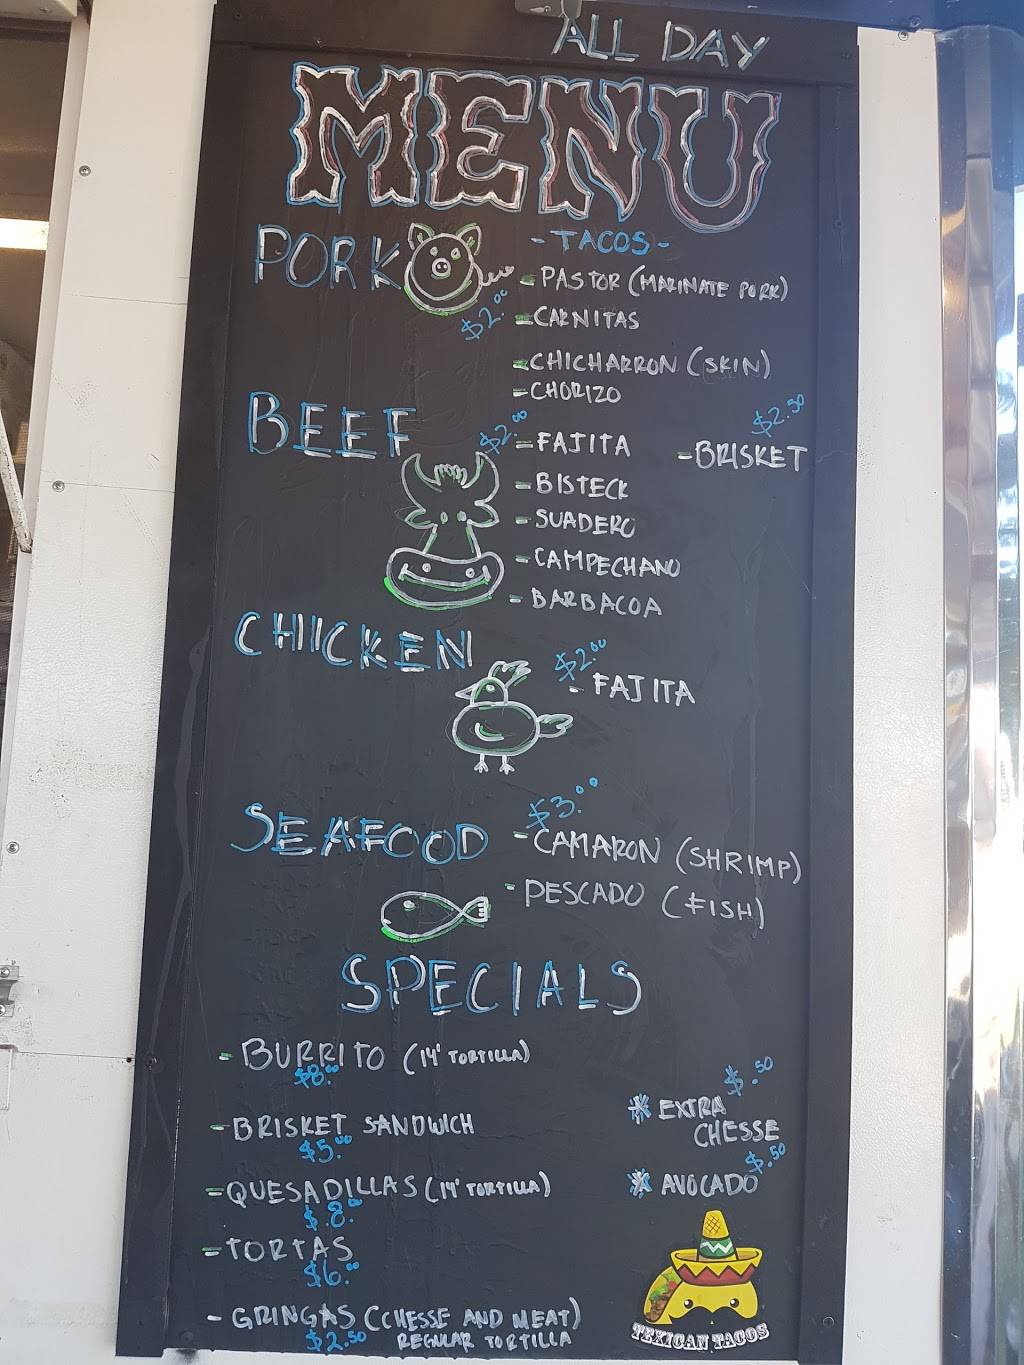 ALL DAY
MENU
PORK
-TACOS-
- PASTOR (MARINATE PORK)
$2.00
- CARNITAS
- CHICHARRON (SKIN)
- CHORIZO
BEEF
$2.00
- FAJITA
$2.50
- BRISKET
- BISTECK
- SUADERO
- CAMPECHANO
- BARBACOA
CHICKEN
$2.00
- FAJITA
SEAFOOD
$3.00
- CAMARON (SHRIMP)
- PESCADO (FISH)
SPECIALS
- BURRITO (14' TORTILLA)
$8.00
- BRISKET SANDWICH
$5.00
- QUESADILLAS (14' TORTILLA)
$.8.00
- TORTAS
$6.00
- GRINGAS (CHESSE AND MEAT)
$2.50 REGULAR TORTILLA
$.50
* EXTRA
CHESSE
$.50
* AVOCADO
TEXICAN TACOS